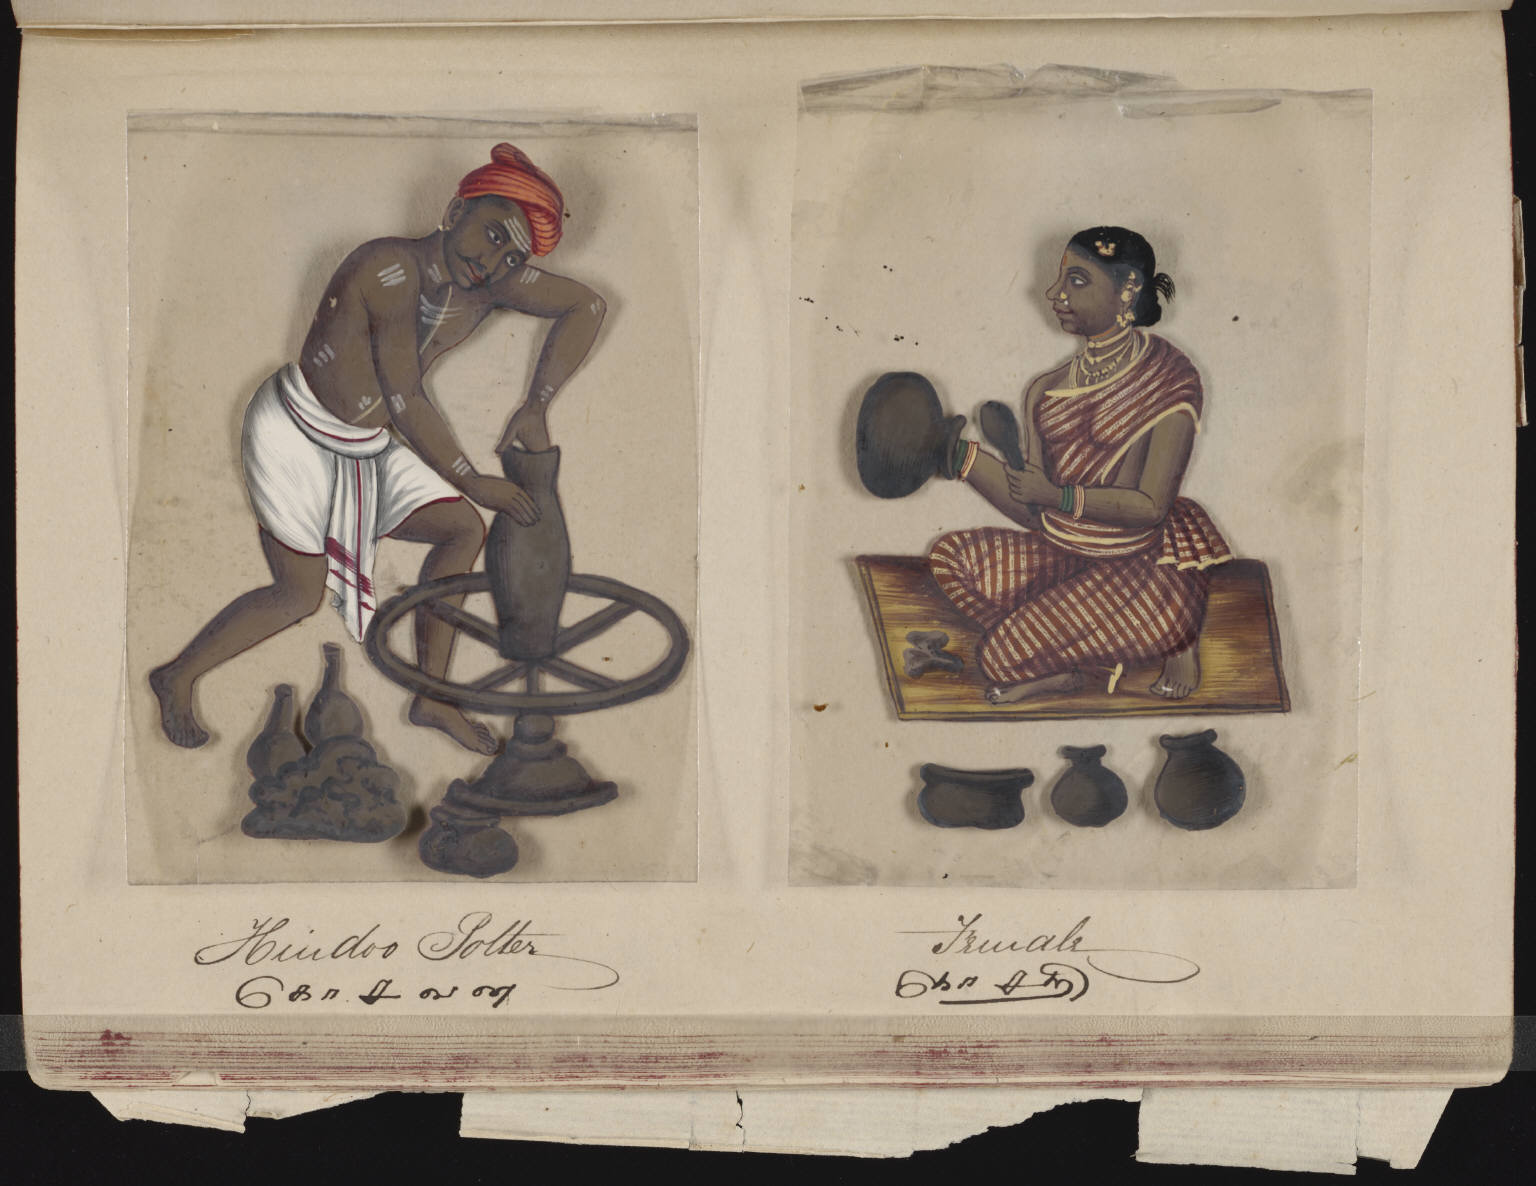 Hindoo Potter
கோசவன
Female